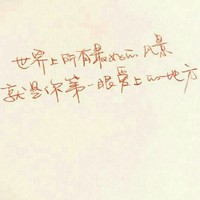 世界上所有最的风景
就是你第一眼爱上的地方